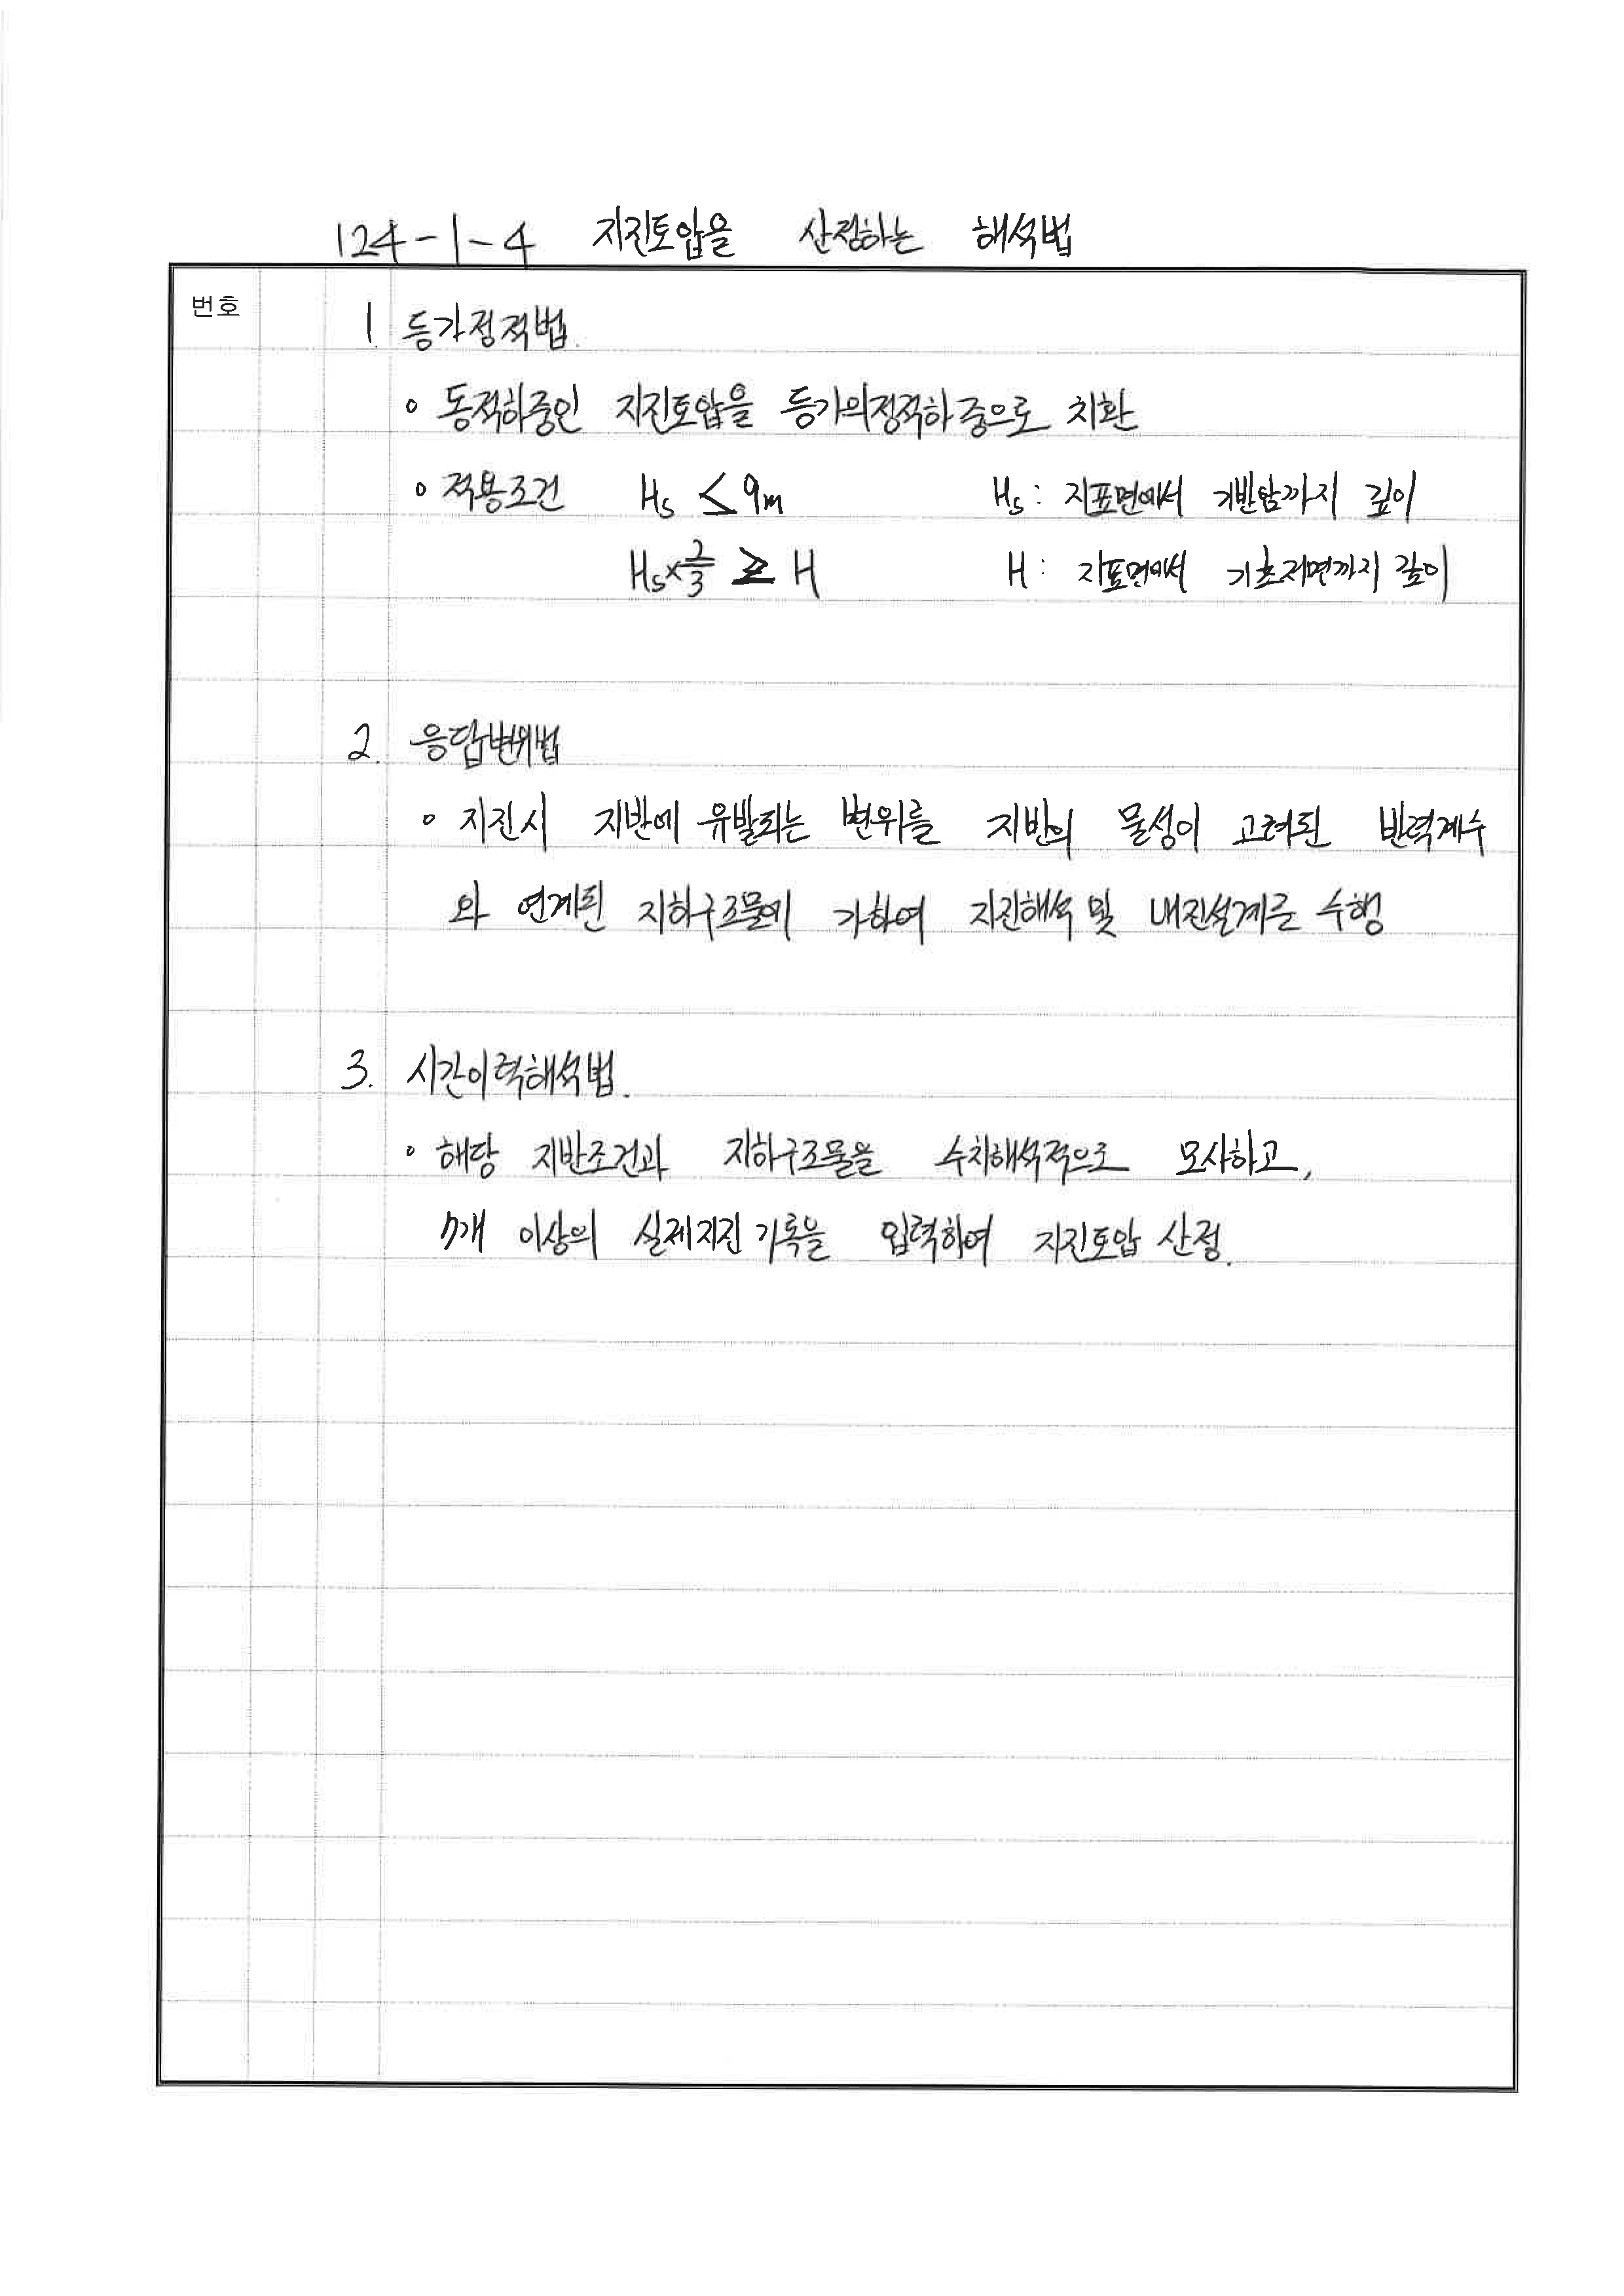 124-1-4 지진토압을 산정하는 해석법
번호
1. 등가정적법.
∘ 동적하중인 지진토압을 등가의정적하중으로 치환
∘ 적용조건 Hs ≤ 9m Hs : 지표면에서 기반암까지 깊이
Hs×2/3 ≥ H H : 지표면에서 기초저면까지 깊이
2. 응답변위법
∘ 지진시 지반에 유발되는 변위를 지반의 물성이 고려된 반력계수
와 연계된 지하구조물에 가하여 지진해석 및 내진설계를 수행
3. 시간이력해석법.
∘ 해당 지반조건과 지하구조물을 수치해석적으로 모사하고,
7개 이상의 실제지진 기록을 입력하여 지진토압 산정.